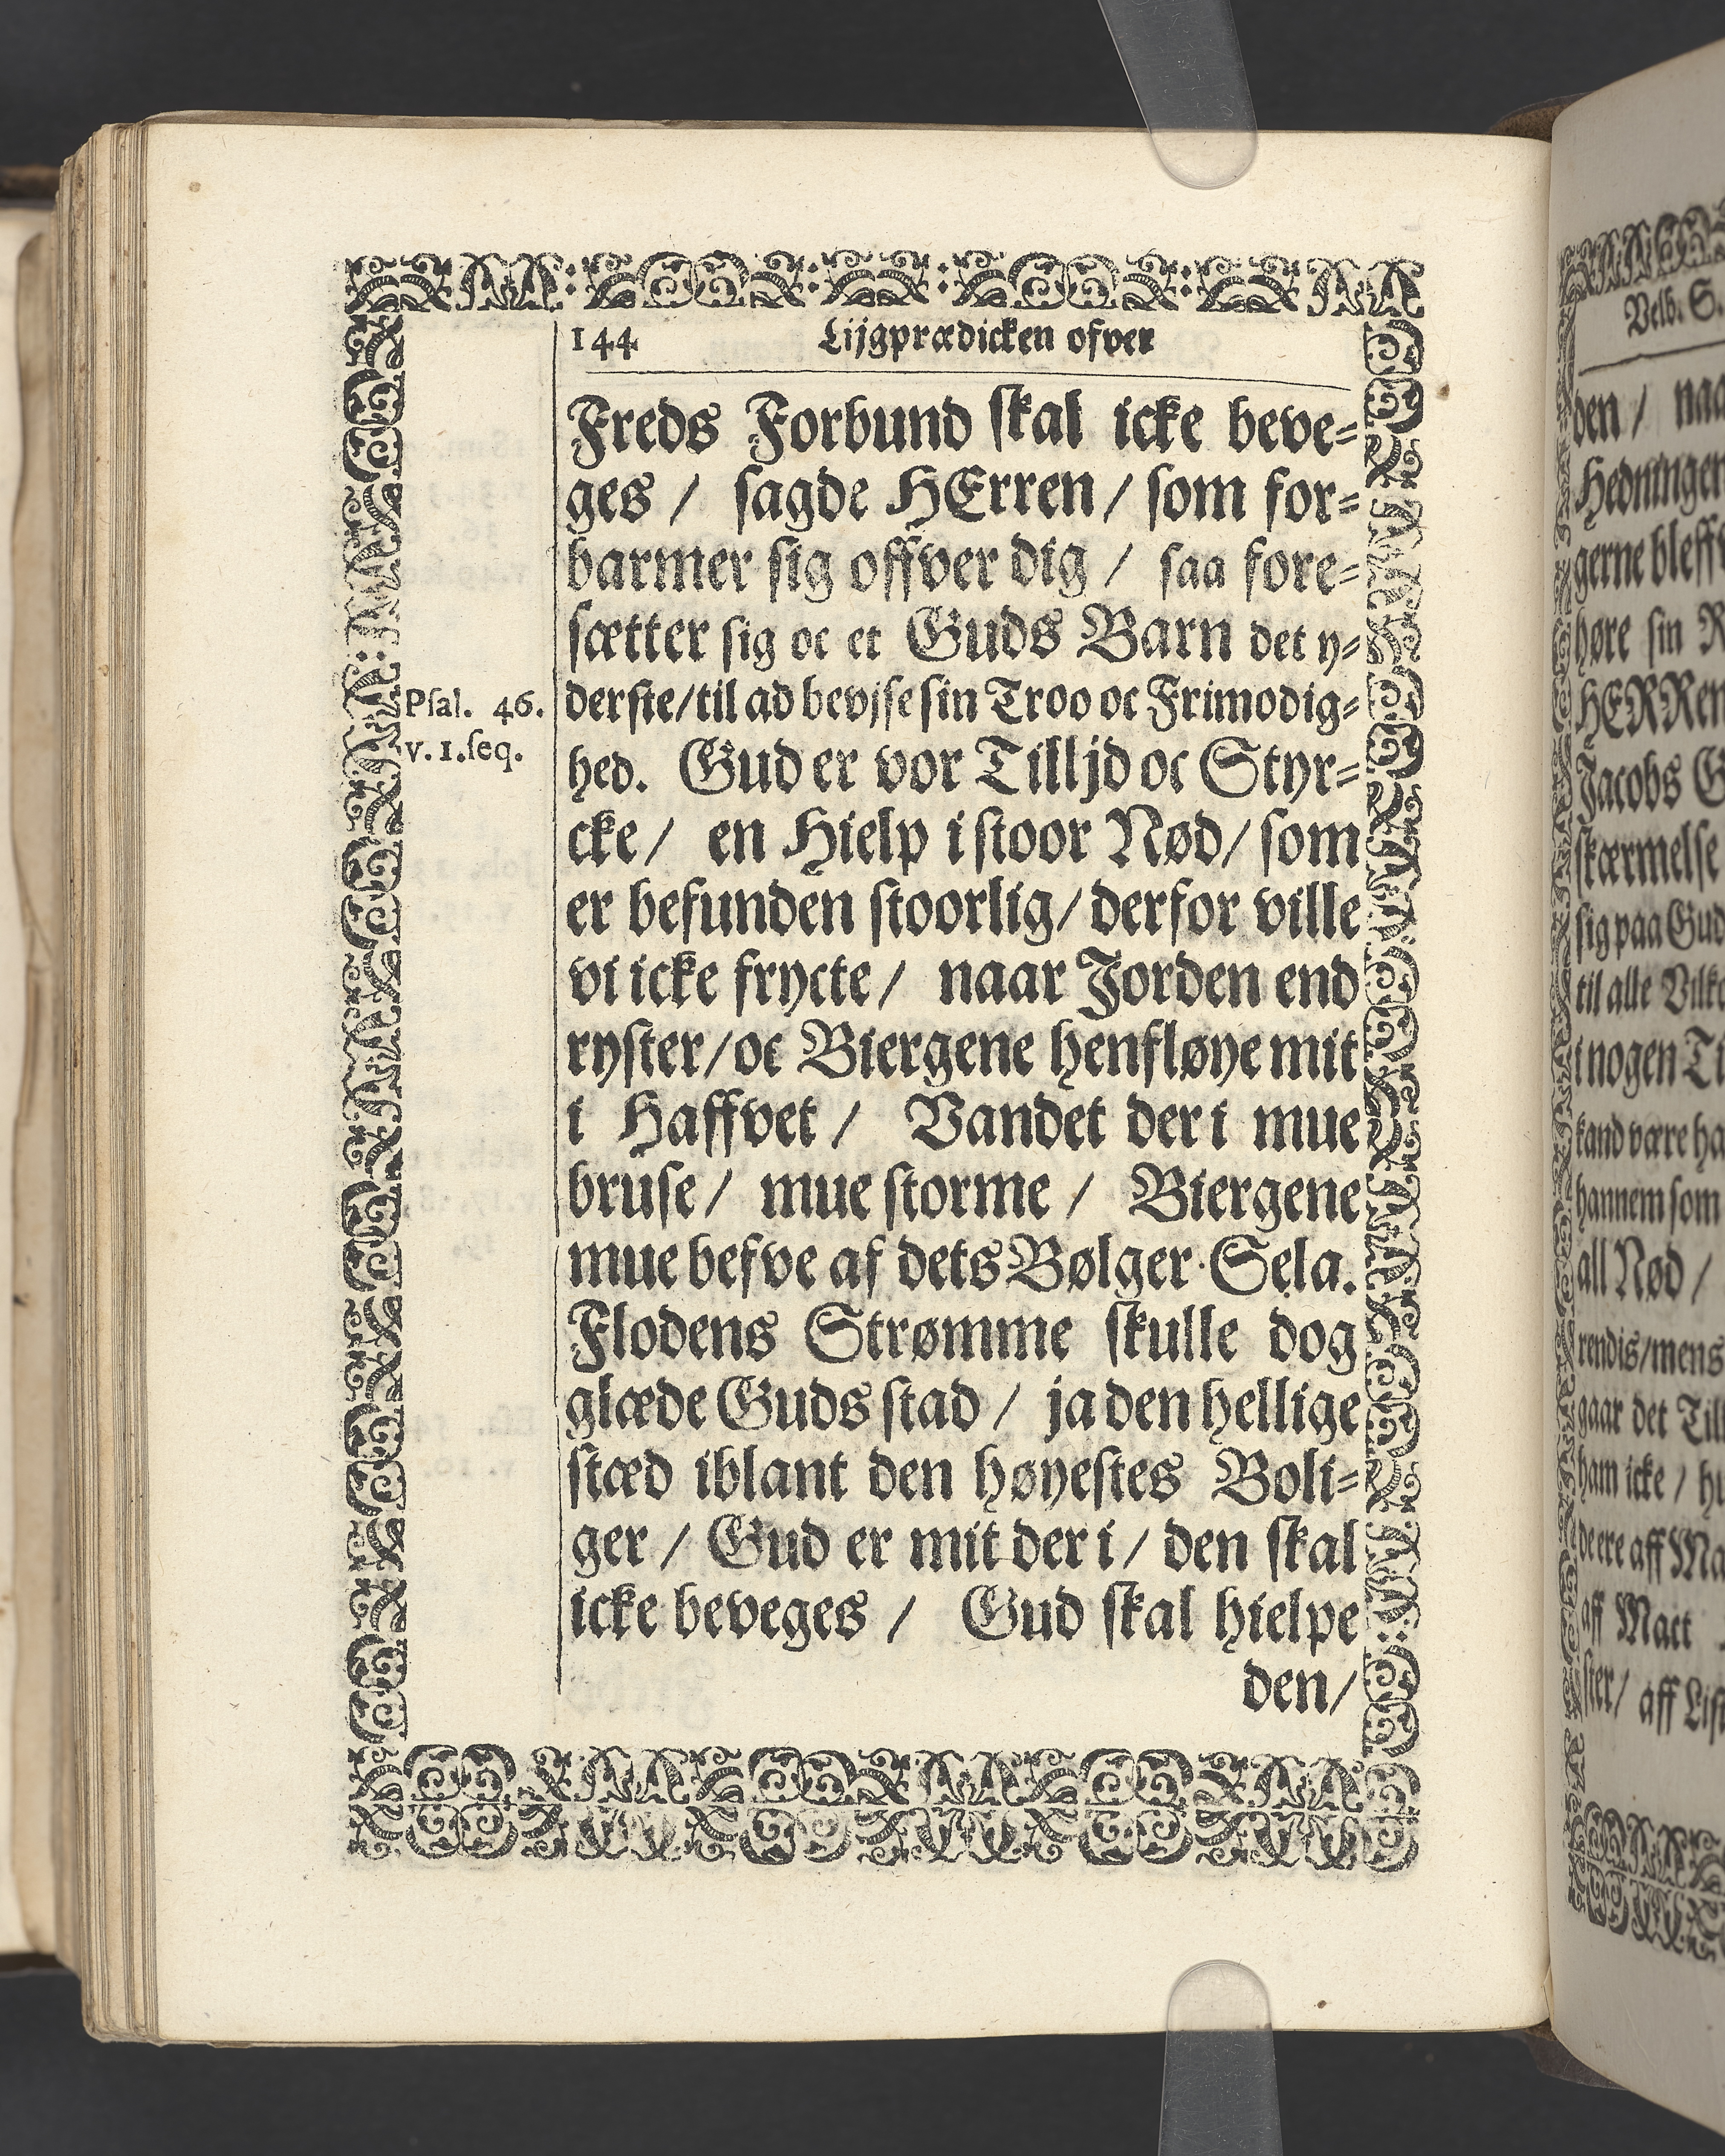 144 Lijgprædicken ofver
Freds Forbund skal icke beve-
ges / sagde HErren / som for-
barmer sig offver dig / saa fore-
sætter sig oc et Guds Barn det y-
derste/til ad bevjse sin Troo oc Frimodig-
Psal. 46.
v. 1. seq.
hed. Gud er vor Tilljd oc Styr-
cke / en Hielp i stoor Nød / som
er befunden stoorlig / derfor ville
vi icke frycte / naar Jorden end
ryster / oc Biergene henfløye mit
i Haffvet / Vandet der i mue
bruse / mue storme / Biergene
mue befve af dets Bølger Sela.
Flodens Strømme skulle dog
glæde Guds stad / ja den hellige
stæd iblant den høyestes Boli-
ger / Gud er mit der i / den skal
icke beveges / Gud skal hielpe
den /
Velb. S.
den / naa
Hedningen
gerne bleff
høre sin R
HERRen
Jacobs G
skærmelse
sig paa Gud
til alle Vilk
i nogen Ti
kand være ha
hannem som
all Nød /
rendis/mens
gaar det Till
ham icke / hu
deere aff Ma
aff Mact
ster / aff List